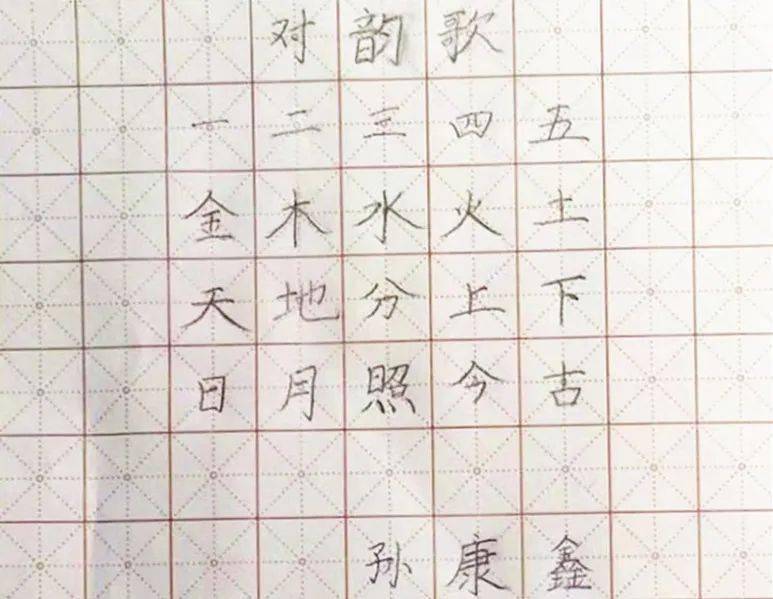 对韵歌
一二三四五
金木水火土
天地分上下
日月照今古
孙康鑫